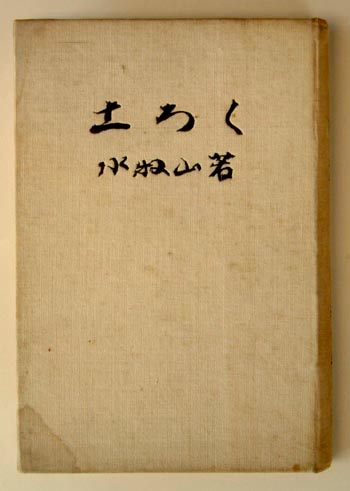 土ろく
水 山著